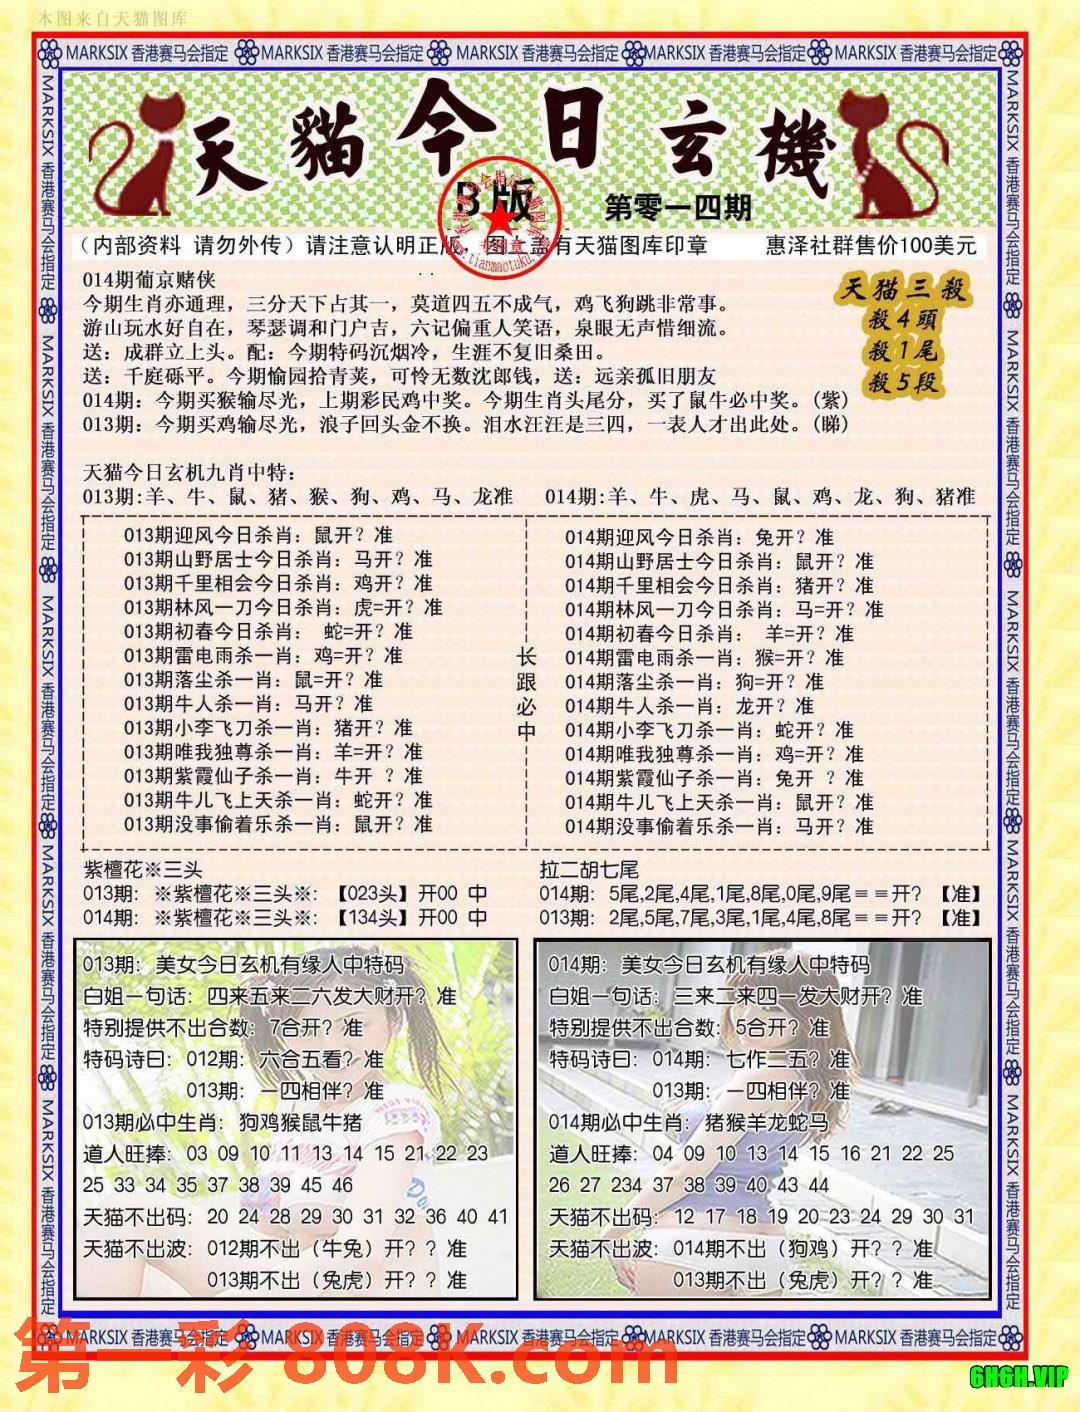 本图来自天猫图库
MARKSIX 香港赛马会指定 MARKSIX 香港赛马会指定 MARKSIX 香港赛马会指定 MARKSIX 香港赛马会指定 MARKSIX 香港赛马会指定
天貓今日玄機
B版
第零一四期
(内部资料 请勿外传)请注意认明正版,图上盖有天猫图库印章 惠泽社群售价100美元
014期葡京赌侠
今期生肖亦通理,三分天下占其一,莫道四五不成气,鸡飞狗跳非常事。
游山玩水好自在,琴瑟调和门户吉,六记偏重人笑语,泉眼无声惜细流。
送:成群立上头。配:今期特码沉烟冷,生涯不复旧桑田。
送:千庭砾平。今期愉园拾青荚,可怜无数沈郎钱,送:远亲孤旧朋友
014期:今期买猴输尽光,上期彩民鸡中奖。今期生肖头尾分,买了鼠牛必中奖。(紫)
013期:今期买鸡输尽光,浪子回头金不换。泪水汪汪是三四,一表人才出此处。(睇)
天猫三殺
殺4頭
殺1尾
殺5段
天猫今日玄机九肖中特:
013期:羊、牛、鼠、猪、猴、狗、鸡、马、龙准 014期:羊、牛、虎、马、鼠、鸡、龙、狗、猪准
013期迎风今日杀肖:鼠开?准
013期山野居士今日杀肖:马开?准
013期千里相会今日杀肖:鸡开?准
013期林风一刀今日杀肖:虎=开?准
013期初春今日杀肖: 蛇=开?准
013期雷电雨杀一肖:鸡=开?准
013期落尘杀一肖:鼠=开?准
013期牛人杀一肖:马开?准
013期小李飞刀杀一肖:猪开?准
013期唯我独尊杀一肖:羊=开?准
013期紫霞仙子杀一肖:牛开 ?准
013期牛儿飞上天杀一肖:蛇开?准
013期没事偷着乐杀一肖:鼠开?准
长跟必中
014期迎风今日杀肖:兔开?准
014期山野居士今日杀肖:鼠开?准
014期千里相会今日杀肖:猪开?准
014期林风一刀今日杀肖:马=开?准
014期初春今日杀肖: 羊=开?准
014期雷电雨杀一肖:猴=开?准
014期落尘杀一肖:狗=开?准
014期牛人杀一肖:龙开?准
014期小李飞刀杀一肖:蛇开?准
014期唯我独尊杀一肖:鸡=开?准
014期紫霞仙子杀一肖:兔开 ?准
014期牛儿飞上天杀一肖:鼠开?准
014期没事偷着乐杀一肖:马开?准
紫檀花※三头
013期:※紫檀花※三头※:【023头】开00 中
014期:※紫檀花※三头※:【134头】开00 中
拉二胡七尾
014期:5尾,2尾,4尾,1尾,8尾,0尾,9尾==开?【准】
013期:2尾,5尾,7尾,3尾,1尾,4尾,8尾==开?【准】
013期:美女今日玄机有缘人中特码
白姐一句话:四来五来二六发大财开?准
特别提供不出合数:7合开?准
特码诗曰:012期:六合五看?准
013期:一四相伴?准
013期必中生肖:狗鸡猴鼠牛猪
道人旺捧:03 09 10 11 13 14 15 21 22 23
25 33 34 35 37 38 39 45 46
天猫不出码:20 24 28 29 30 31 32 36 40 41
天猫不出波:012期不出(牛兔)开??准
013期不出(兔虎)开??准
014期:美女今日玄机有缘人中特码
白姐一句话:三来二来四一发大财开?准
特别提供不出合数:5合开?准
特码诗曰:014期:七作二五?准
013期:一四相伴?准
014期必中生肖:猪猴羊龙蛇马
道人旺捧:04 09 10 13 14 15 16 21 22 25
26 27 234 37 38 39 40 43 44
天猫不出码:12 17 18 19 20 23 24 29 30 31
天猫不出波:014期不出(狗鸡)开??准
013期不出(兔虎)开??准
MARKSIX 香港赛马会指定 MARKSIX 香港赛马会指定 MARKSIX 香港赛马会指定 MARKSIX 香港赛马会指定 MARKSIX 香港赛马会指定
第一彩 808K.com
6HGH.VIP